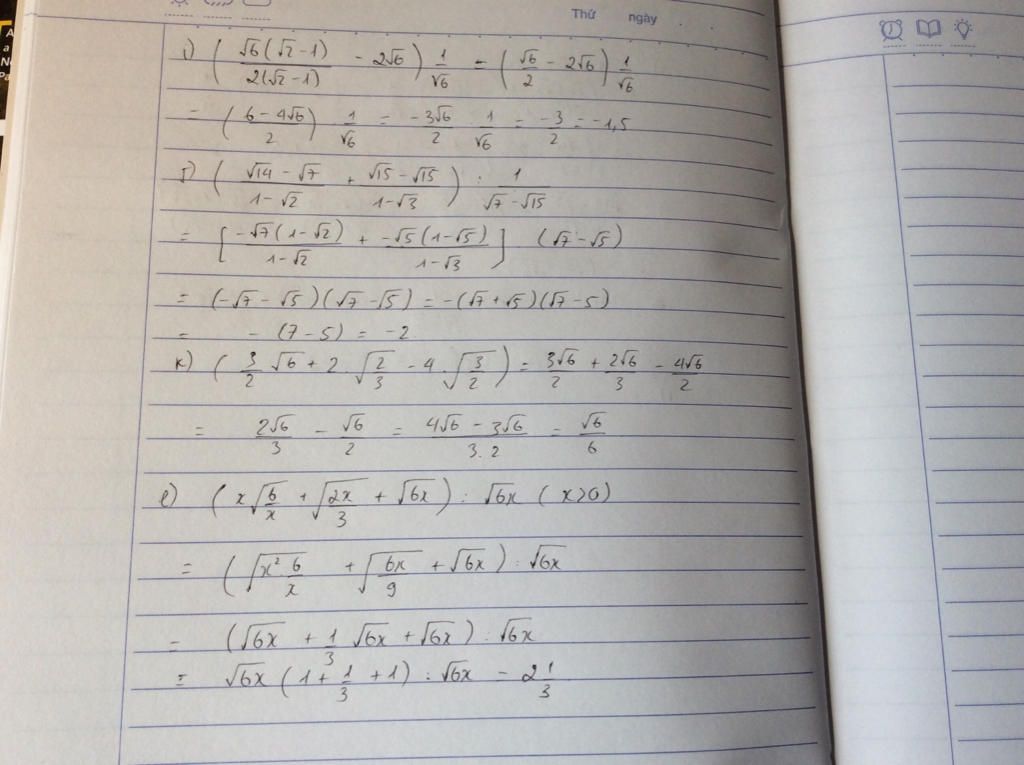 Thứ ngày
i) ( √6(√2-1) / 2(√2-1) - 2√6 ) 1/√6 = ( √6/2 - 2√6 ) 1/√6
= ( (6-4√6)/2 ) 1/√6 = -3√6/2 . 1/√6 = -3/2 = -1,5
( (√14-√7)/(1-√2) + (√15-√15)/(1-√3) ) : 1/(√7-√15)
= [ -√7(1-√2)/(1-√2) + -√5(1-√5)/(1-√3) ] (√7-√5)
= (-√7-√5)(√7-√5) = -(√7+√5)(√7-5)
= - (7-5) = -2
k) ( 3/2 √6 + 2 . √(2/3) - 4 . √(3/2) ) = 3√6/2 + 2√6/3 - 4√6/2
= 2√6/3 - √6/2 = (4√6-3√6)/(3.2) = √6/6
e) ( x√(6/x) + √(2x/3) + √6x ) : √6x (x>0)
= ( √(x² 6/x) + √(6x/9) + √6x ) : √6x
= ( √6x + 1/3 √6x + √6x ) : √6x
= √6x ( 1 + 1/3 + 1 ) : √6x - 2 1/3